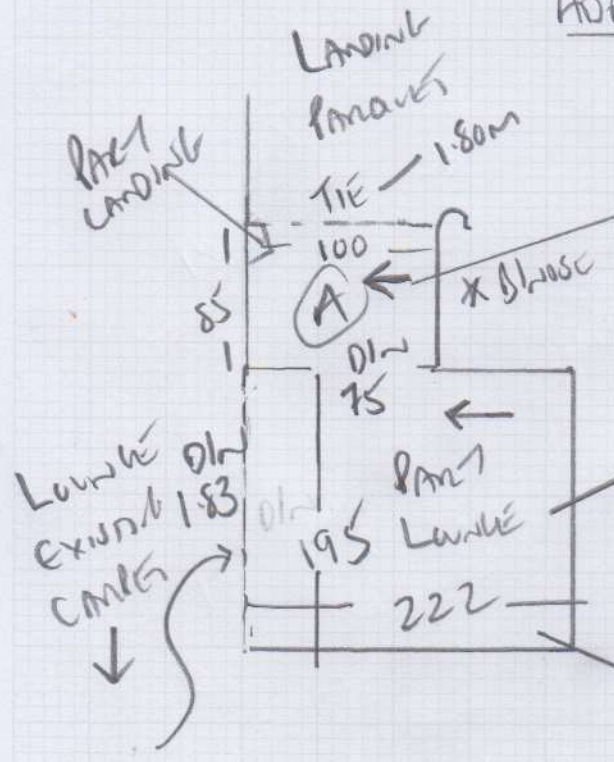 LANDING
PARQUET
PART
LANDING
TIE 1.80M
1
100
85
A
* B/NOSE
1
DIN
75
LOUNGE
EXISTING
CARPET
DIN
1.83
DIN
195
PART
LOUNGE
222